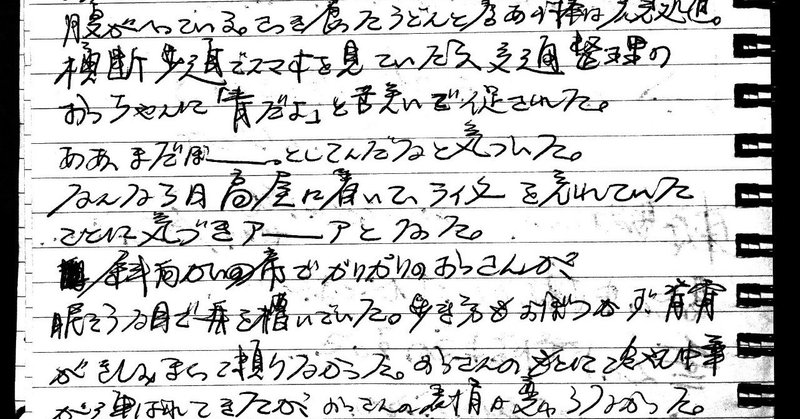 腹がへっている。さっき食ったうどんとなあの
横断歩道でスマホを見ていたら、交通整理の
おっちゃんに「青だよ」と苦笑いで促された。
ああ、まだぼ――。としてんだなと気づいた。
なんなら日高屋に着いて、ライターを忘れていた
ことに気づきア――アとなった。
斜向かいの席でガリガリのおっさんが、
眠そうな目で舟を漕いでいた。歩き方もおぼつかず、背骨
がきしみまくって頼りなかった。おっさんのもとに冷やし中華
が運ばれてきたが、おっさんの表情は変わらなかった。